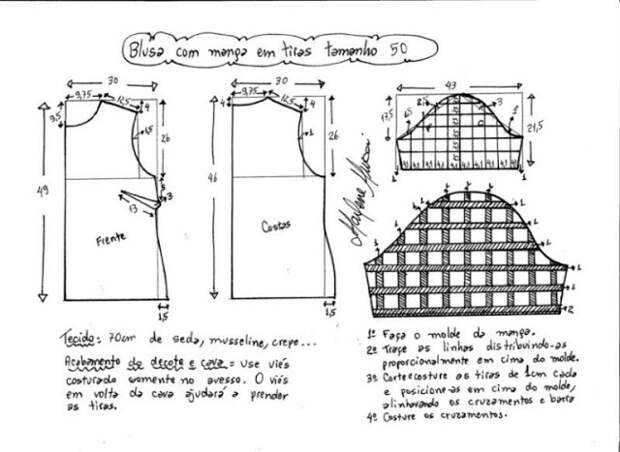 Blusa com manga em tiras tamanho 50
30
9,75
12,5
4
9,5
1,5
26
49
5
3
13
Frente
1,5
30
9,75
12,5
4
4
1
26
46
Costas
1,5
43
17,5
21,5
1,5
2,5
3
1
1
1
Marlene Mukai
1
1
Tecido: 70cm de seda, musseline, crepe...
Acabamento do decote e cava = Use viés
costurado somente no avesso. O viés
em volta da cava ajudará a prender
as tiras.
1º Faça o molde da manga.
2º Trace as linhas distribuindo-as
proporcionalmente em cima do molde.
3º Corte e costure as tiras de 1cm cada
e posicione-as em cima do molde,
alinhavando os cruzamentos e barra
4º Costure os cruzamentos.